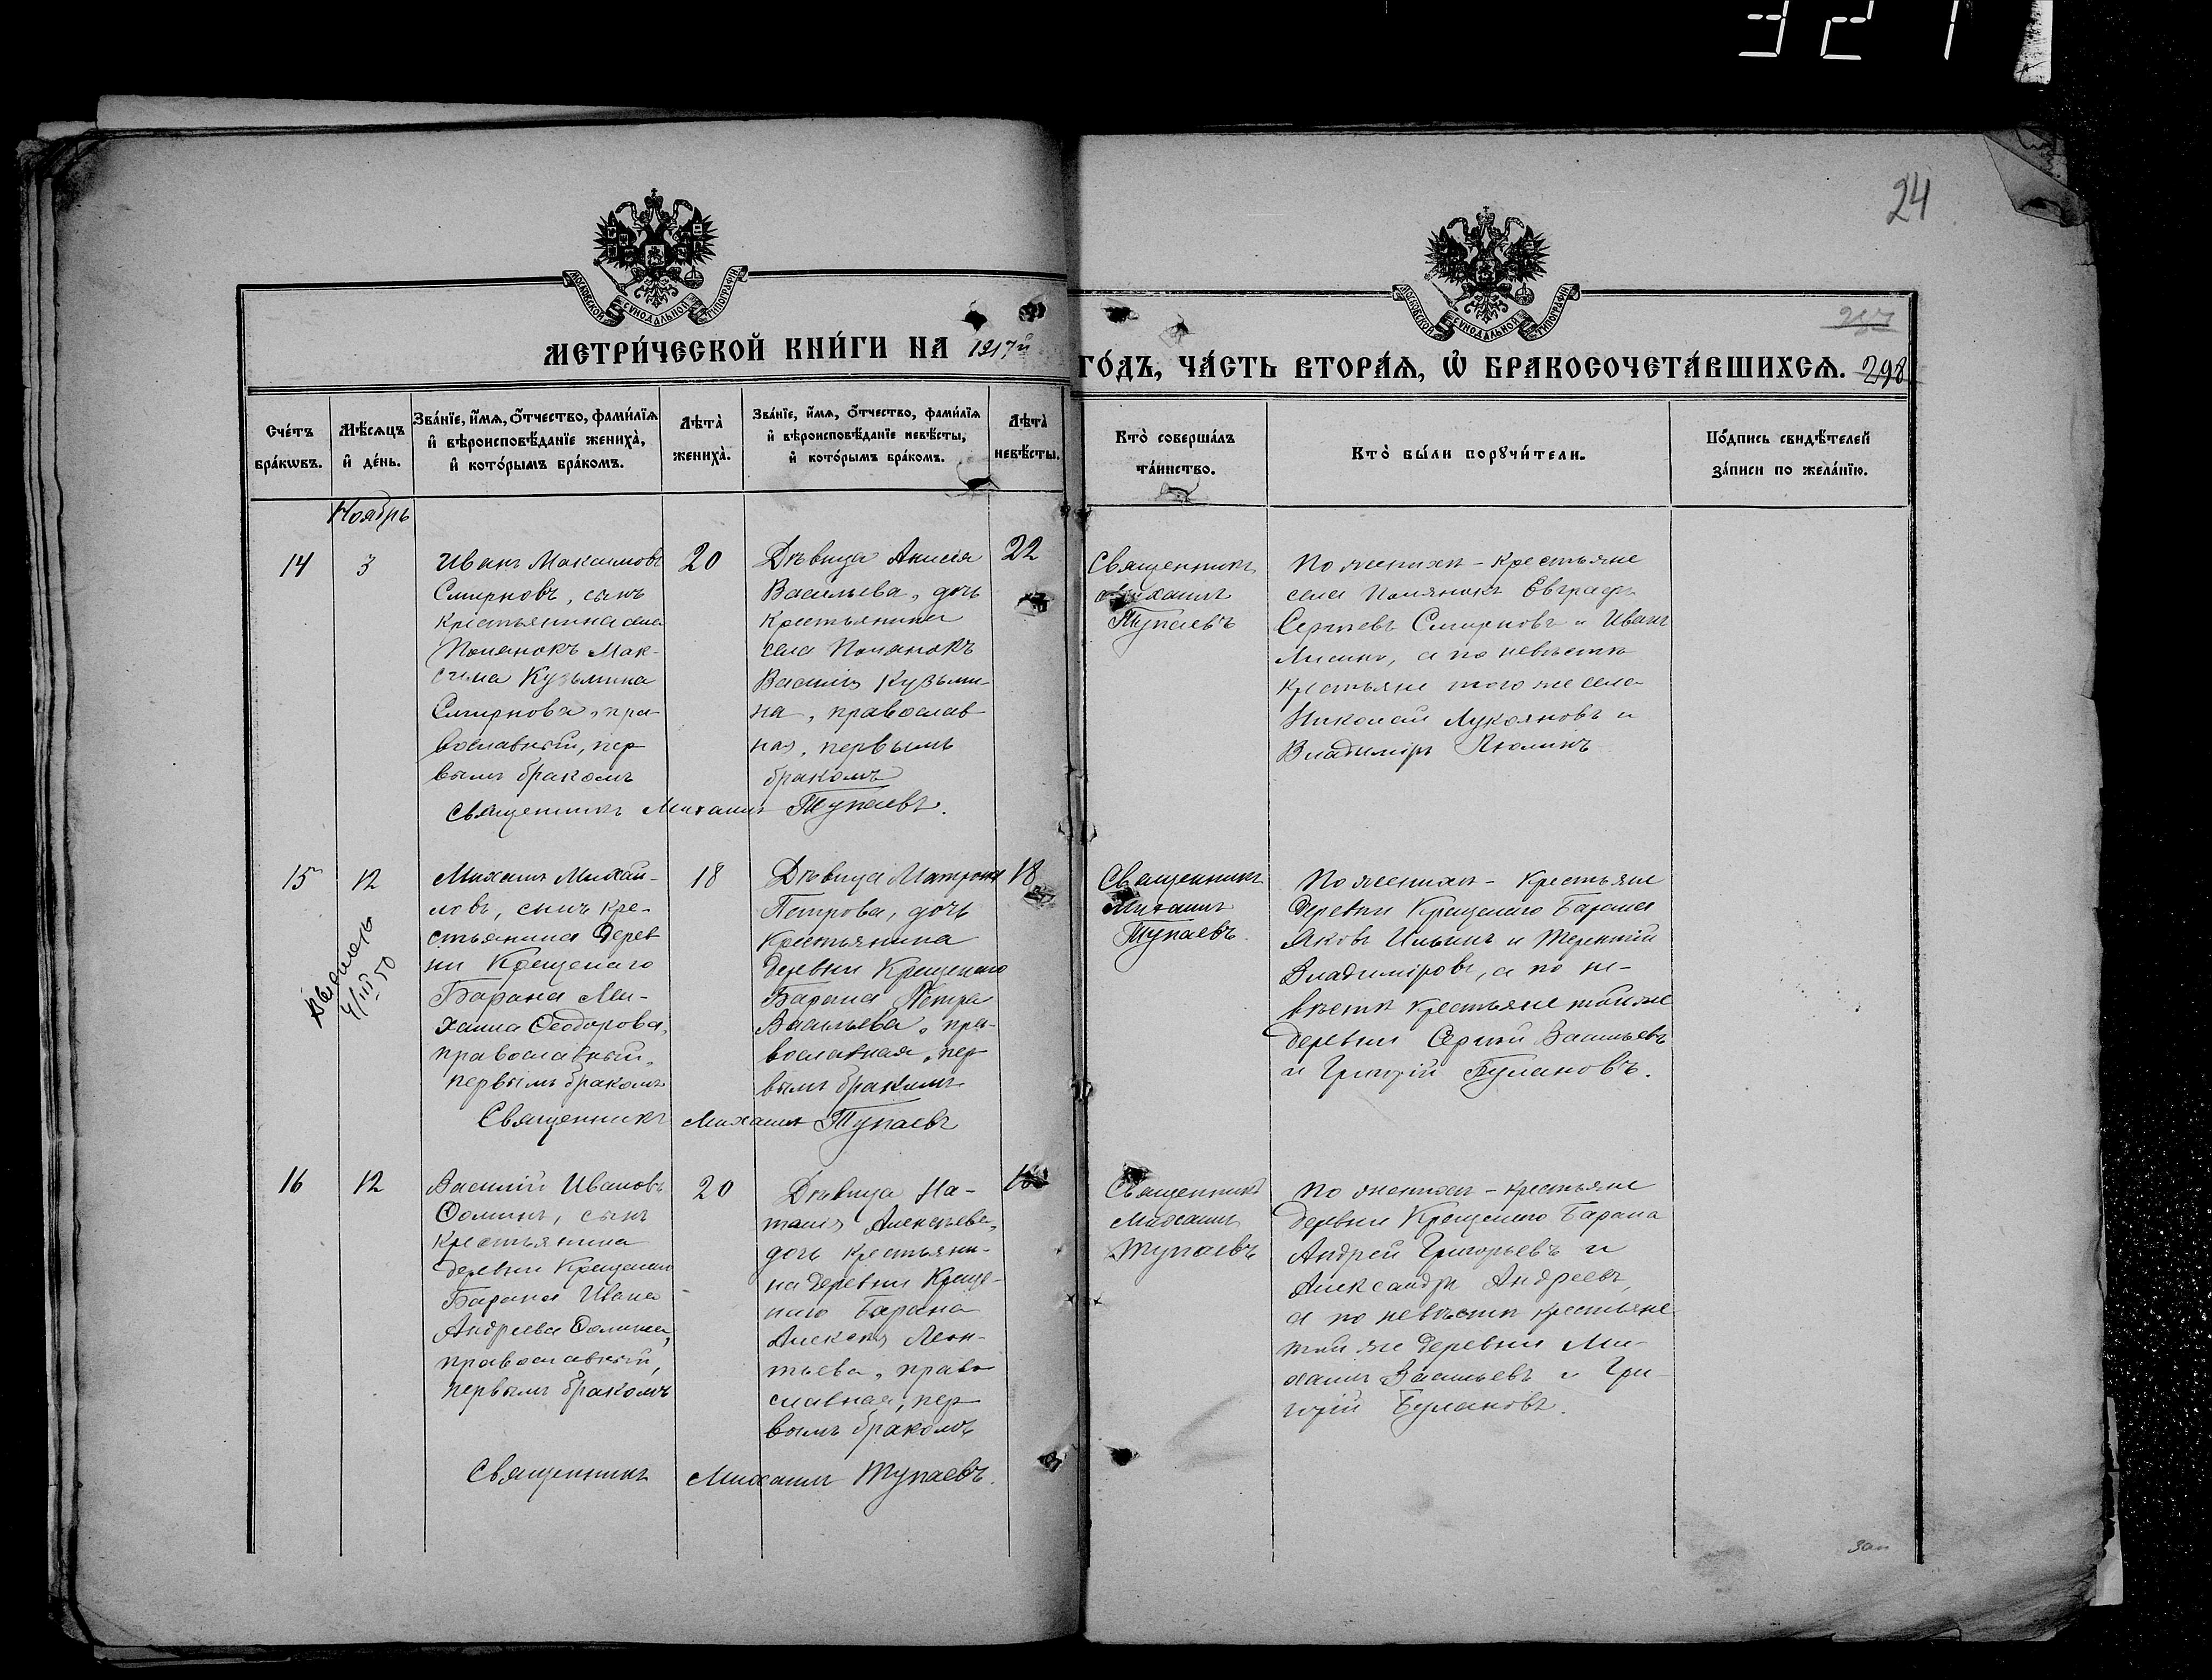 321
24
МОСКОВСКОЙ СѴНОДАЛЬНОЙ ТИПОГРАФІИ
МОСКОВСКОЙ СѴНОДАЛЬНОЙ ТИПОГРАФІИ
МЕТРИ́ЧЕСКОЙ КНИ́ГИ НА 1917й ГО́ДЪ, ЧА́СТЬ ВТОРА́Ѧ, Ѡ҆ БРАКОСОЧЕТА́ВШИХСѦ. 298
Сче́тъ
бра́кѡвъ.
Мѣ́сѧцъ
и҆ де́нь.
Зва́нїе, и҆́мѧ, ѻ҆́тчество, фами́лїѧ
и҆ вѣроисповѣ́данїе жениха̀,
и҆ кото́рымъ бра́комъ.
Лѣта̀
жениха̀.
Зва́нїе, и҆́мѧ, ѻ҆́тчество, фами́лїѧ
и҆ вѣроисповѣ́данїе невѣ́сты,
и҆ кото́рымъ бра́комъ.
Лѣта̀
невѣ́сты.
Кто̀ соверша́лъ
та́инство.
Кто̀ бы́ли порꙋчи́тели.
По́дпись свидѣ́телей
за́писи по жела́нїю.
Ноябрь
14
3
Иванъ Максимовъ
Смирновъ, сынъ
крестьянина села
Полянокъ Мак-
сима Кузьмина
Смирнова, пра-
вославный, пер-
вымъ бракомъ
20
Дѣвица Анисія
Васильева, дочь
крестьянина
села Полянокъ
Василія Кузьми-
на, православ-
ная, первымъ
бракомъ
22
Священникъ
Михаилъ
Тупаевъ
По женихѣ - крестьяне
села Полянокъ Евграфъ
Сергѣевъ Смирновъ и Иванъ
а по невѣстѣ
крестьяне того же села
Николай Лукояновъ и
Владиміръ
Священникъ Михаилъ Тупаевъ.
15
12
Михаилъ Михай-
ловъ, сынъ кре-
стьянина дерев
ни Крещенаго
Барана Ми-
хаила Ѳеодорова,
православный,
первымъ бракомъ
18
Дѣвица Матрона
Петрова, дочь
крестьянина
деревни Крещенаго
Барана Петра
Васильева, пра-
вославная, пер-
вымъ бракомъ
18
Священникъ
Михаилъ
Тупаевъ
По женихѣ - крестьяне
деревни Крещенаго Барана
Яковъ Ильинъ и Терентій
Владиміровъ, а по не-
вѣстѣ крестьяне той же
деревни Сергѣй Васильевъ
и Григорій Булановъ.
4/III 50
Священникъ Михаилъ Тупаевъ
16
12
Василій Ивановъ
Ѳоминъ, сынъ
крестьянина
деревни Крещенаго
Барана Ивана
Андреева Ѳомина,
православный,
первымъ бракомъ
20
Дѣвица На-
талія Алексѣева,
дочь крестьяни-
на деревни Креще-
наго Барана
Алексѣя Леон-
тьева, право-
славная, пер-
вымъ бракомъ
Священникъ
Михаилъ
Тупаевъ
По женихѣ - крестьяне
деревни Крещенаго Барана
Андрей Григорьевъ и
Александръ Андреевъ,
а по невѣстѣ крестьяне
той же деревни Ми-
хаилъ Васильевъ и Гри-
горій Булановъ.
Священникъ Михаилъ Тупаевъ.